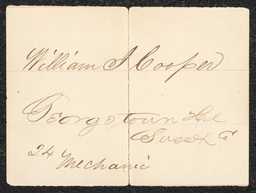 William S Cooper
Georgetown Del
Sussex Co
24 Mechanic